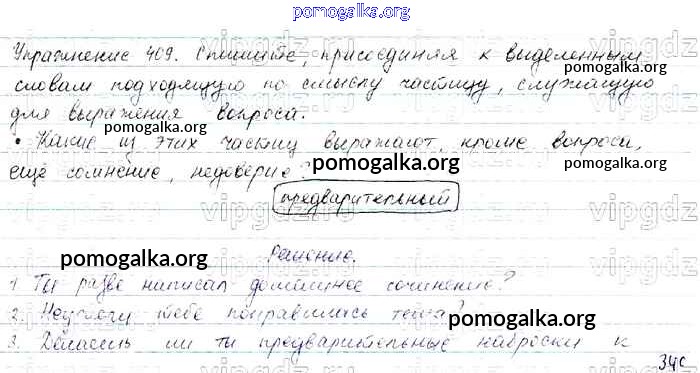 pomogalka.org
Упражнение 409. Спишите, присоединяя к выделенным
pomogalka.org
словам подходящую по смыслу частицу, служащую
для выражения вопроса.
pomogalka.org
• Какие из этих частиц выражают, кроме вопроса,
pomogalka.org
pomogalka.org
ещё сомнение, недоверие?
предварительный
Решение.
pomogalka.org
1. Ты разве написал домашнее сочинение?
pomogalka.org
2. Неужели тебе понравилась тема?
pomogalka.org
3. Делаешь ли ты предварительные наброски к
340